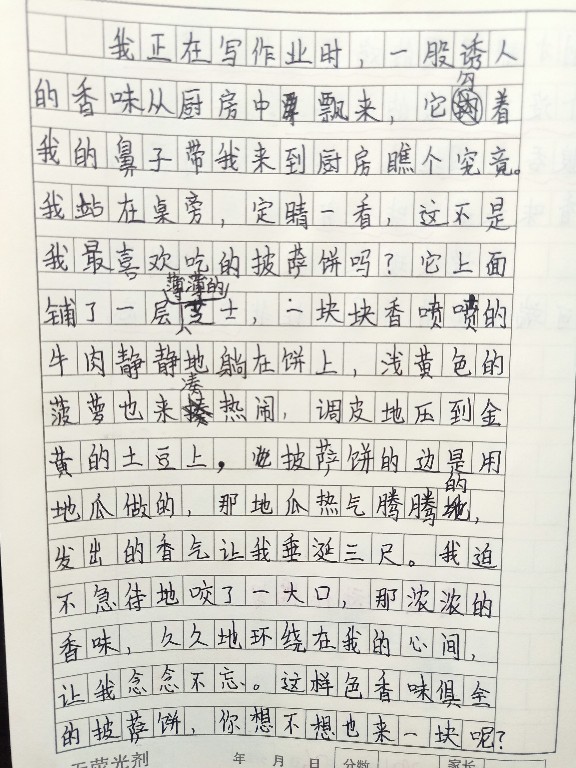 我正在写作业时，一股诱人
的香味从厨房中飘来，它勾着
我的鼻子带我来到厨房瞧个究竟。
我站在桌旁，定睛一看，这不是
我最喜欢吃的披萨饼吗？它上面
铺了一层薄薄的芝士，一块块香喷喷的
牛肉静静地躺在饼上，浅黄色的
菠萝也来凑热闹，调皮地压到金
黄的土豆上，披萨饼的边是用
地瓜做的，那地瓜热气腾腾的，
发出的香气让我垂涎三尺。我迫
不急待地咬了一大口，那浓浓的
香味，久久地环绕在我的心间，
让我念念不忘。这样色香味俱全
的披萨饼，你想不想也来一块呢？
无荧光剂 年 月 日 分数 家长